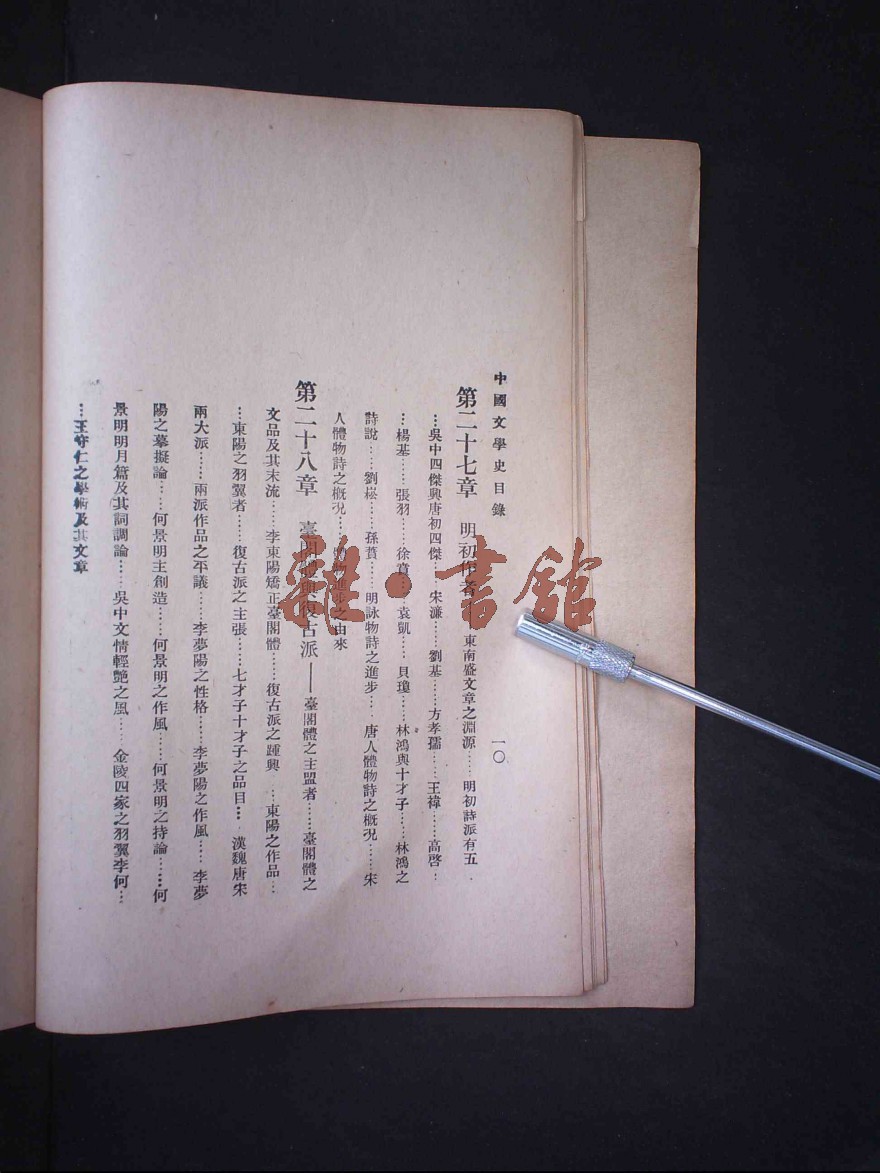 中國文學史目錄
一〇
第二十七章 明初作者——東南盛文章之淵源……明初詩派有五……
…吳中四傑與唐初四傑…宋濂……劉基……方孝孺……王褘……高啓…
…楊基……張羽……徐賁……袁凱……貝瓊……林鴻與十才子……林鴻之
詩說……劉崧……孫蕡……明詠物詩之進步……唐人體物詩之概況……宋
人體物詩之概況……體物進步之由來
第二十八章 臺閣體與復古派——臺閣體之主盟者……臺閣體之
文品及其末流……李東陽矯正臺閣體……復古派之踵興…東陽之作品…
…東陽之羽翼者……復古派之主張……七才子十才子之品目……漢魏唐宋
兩大派……兩派作品之平議……李夢陽之性格……李夢陽之作風……李夢
陽之摹擬論……何景明主創造……何景明之作風……何景明之持論……何
景明明月篇及其詞調論……吳中文情輕艷之風……金陵四家之羽翼李何…
…王守仁之學術及其文章
雜·書館